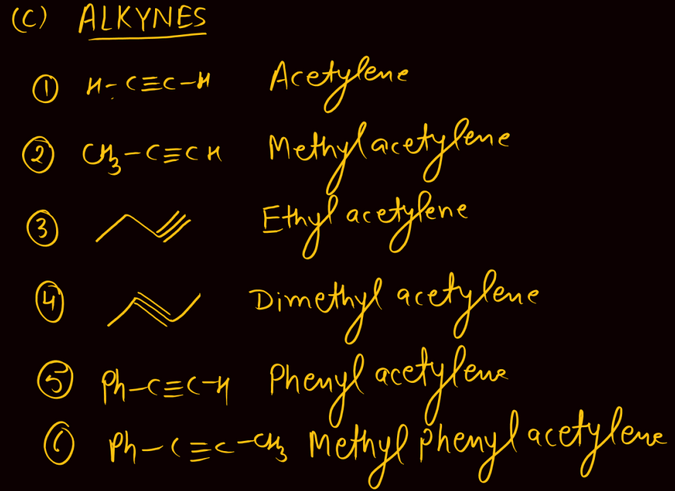 (C) ALKYNES
① H-C≡C-H Acetylene
② CH₃-C≡CH Methylacetylene
③ Ethyl acetylene
④ Dimethyl acetylene
⑤ Ph-C≡C-H Phenyl acetylene
⑥ Ph-C≡C-CH₃ Methyl phenyl acetylene